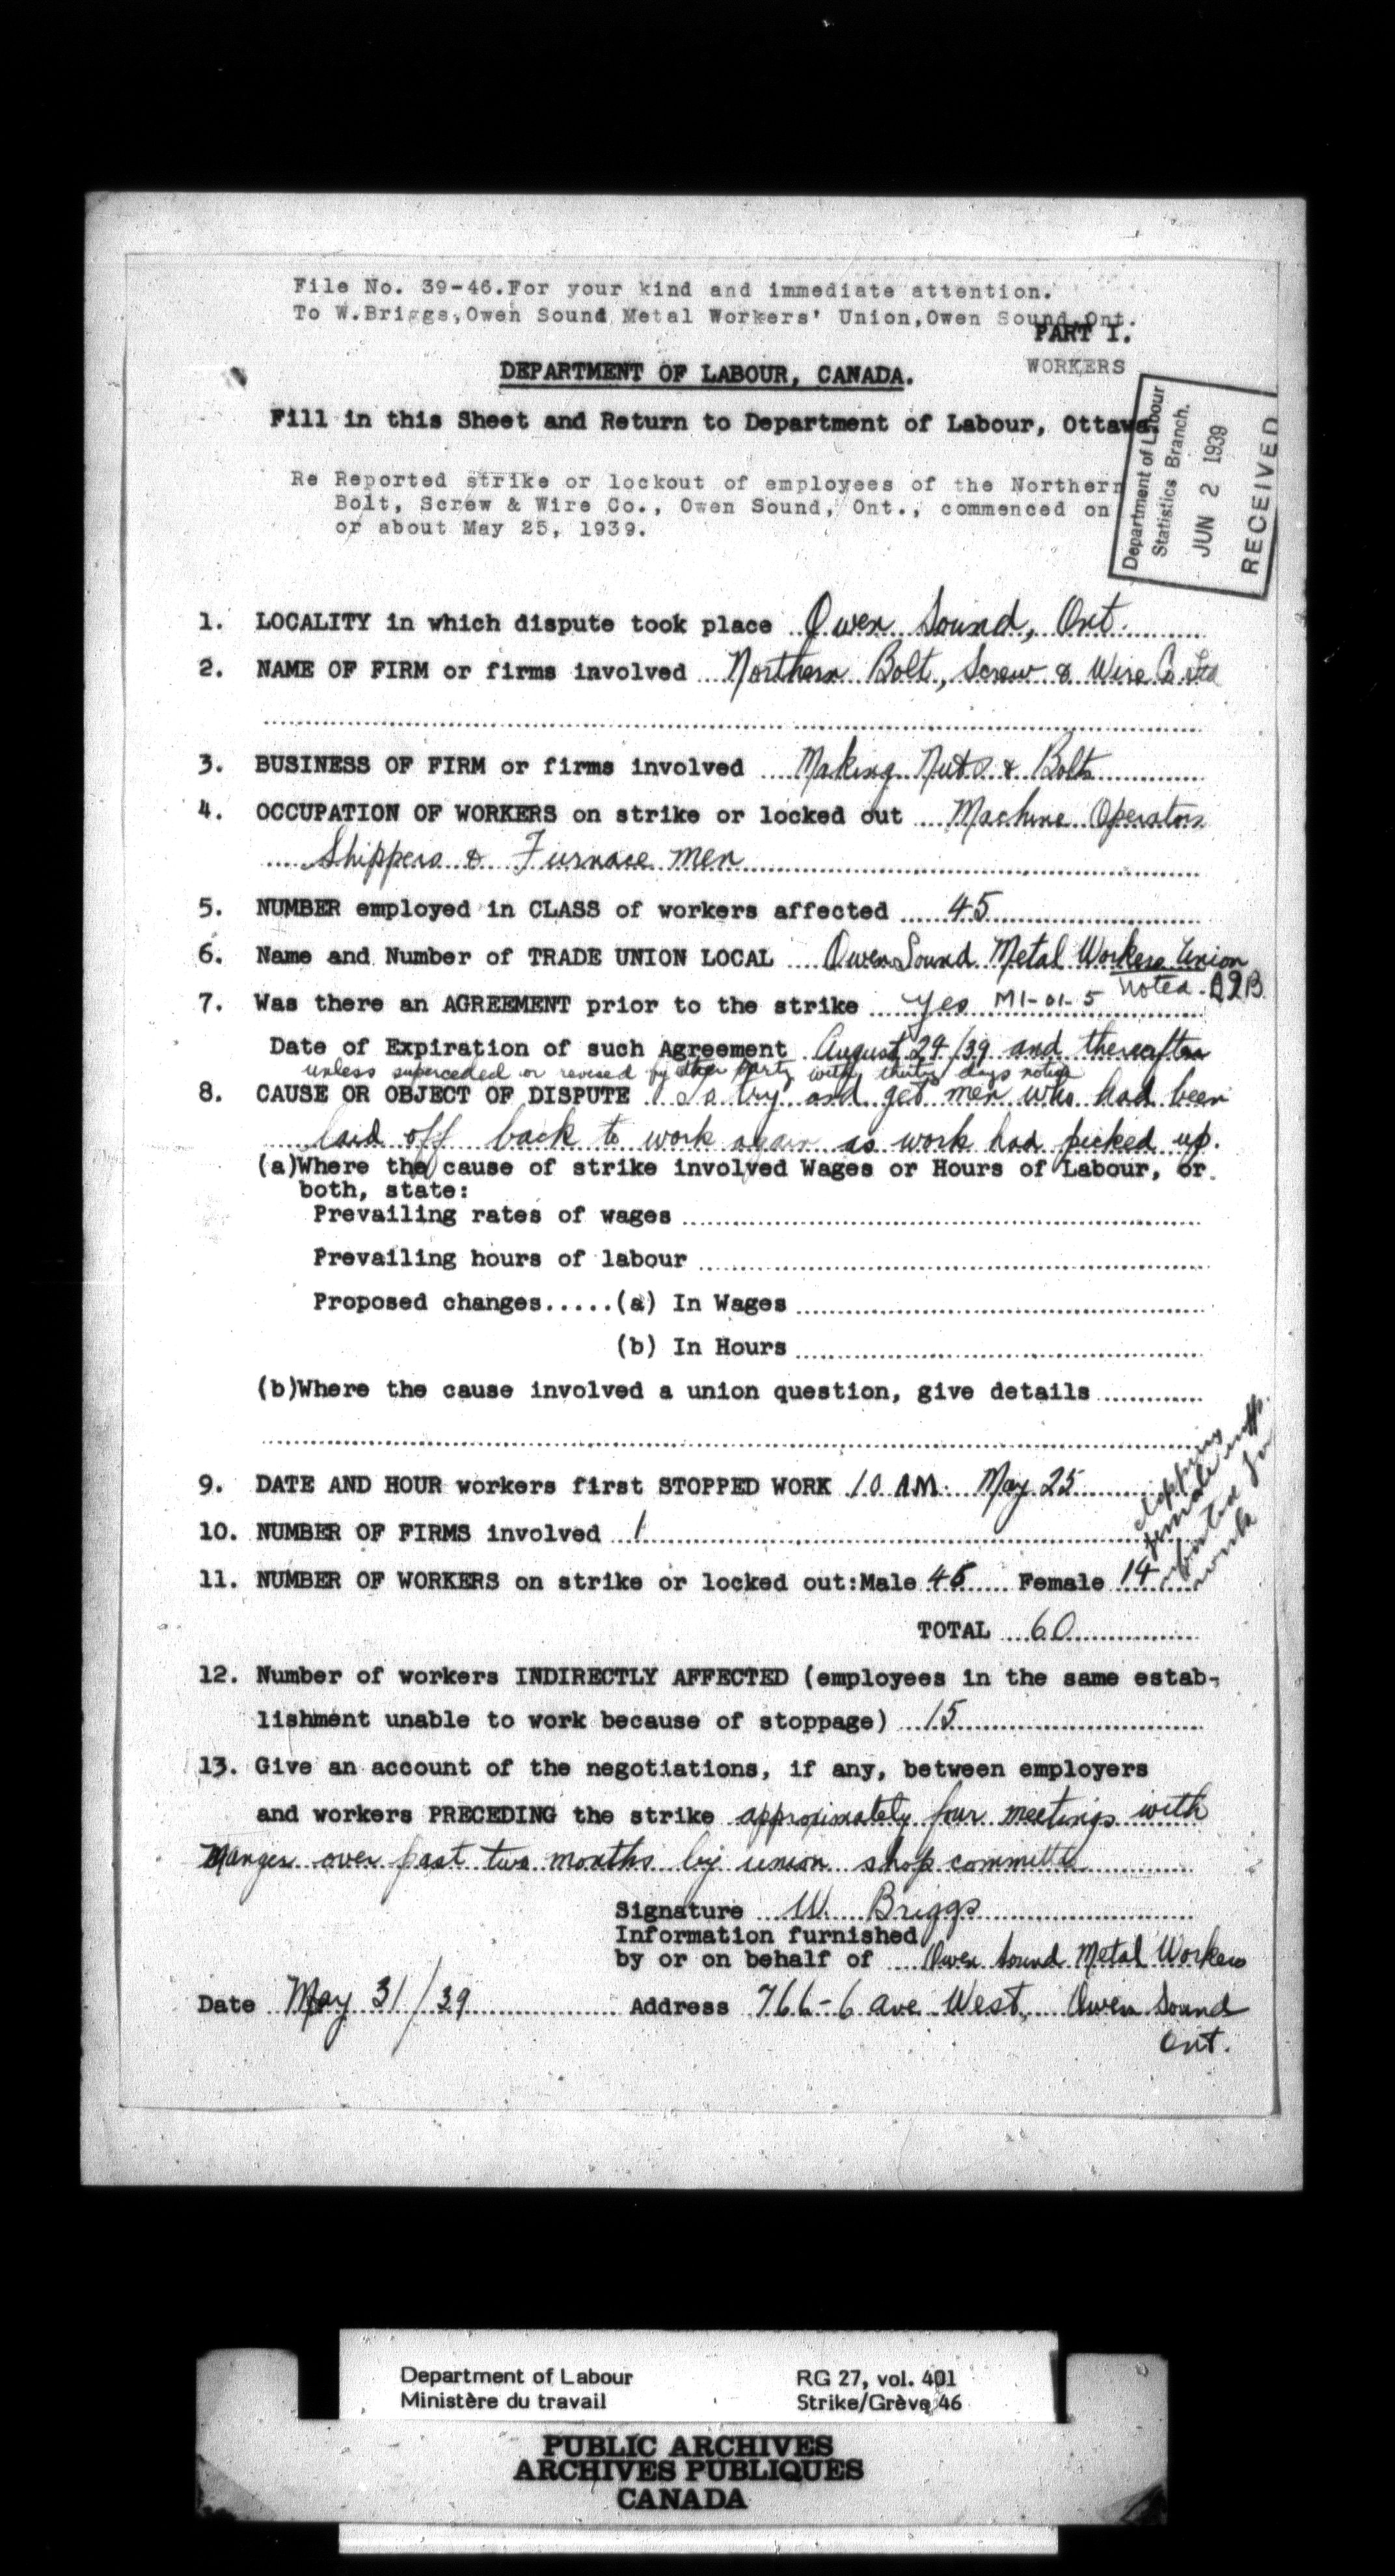 File No. 39-46.For your kind and immediate attention.
To W.Briggs,Owen Sound Metal Workers' Union,Owen Sound,Ont.
PART I.
WORKERS
DEPARTMENT OF LABOUR, CANADA.
Fill in this Sheet and Return to Department of Labour, Ottawa.
Department of Labour
Statistics Branch.
JUN 2 1939
RECEIVED
Re Reported strike or lockout of employees of the Northern
Bolt, Screw & Wire Co., Owen Sound, Ont., commenced on
or about May 25, 1939.
1. LOCALITY in which dispute took place Owen Sound, Ont.
2. NAME OF FIRM or firms involved Northern Bolt, Screw & Wire Co Ltd
3. BUSINESS OF FIRM or firms involved Making Nuts & Bolts
4. OCCUPATION OF WORKERS on strike or locked out Machine Operators
Shippers & Furnace men
5. NUMBER employed in CLASS of workers affected 45
6. Name and Number of TRADE UNION LOCAL Owen Sound Metal Workers Union
7. Was there an AGREEMENT prior to the strike Yes M1-01-5 Noted
Date of Expiration of such Agreement August 24/39 and thereafter
unless superceded or revised by either party with thirty days notice
8. CAUSE OR OBJECT OF DISPUTE To try and get men who had been
laid off back to work again as work had picked up.
(a)Where the cause of strike involved Wages or Hours of Labour, or
both, state:
Prevailing rates of wages
Prevailing hours of labour
Proposed changes.....(a) In Wages
(b) In Hours
(b)Where the cause involved a union question, give details
9. DATE AND HOUR workers first STOPPED WORK 10 AM. May 25
10. NUMBER OF FIRMS involved 1
11. NUMBER OF WORKERS on strike or locked out:Male 46 Female 14
clipping
female
for
work
TOTAL 60
12. Number of workers INDIRECTLY AFFECTED (employees in the same estab-
lishment unable to work because of stoppage) 15
13. Give an account of the negotiations, if any, between employers
and workers PRECEDING the strike approximately four meetings with
Manger over past two months by union shop committe
Signature W. Briggs
Information furnished
by or on behalf of Owen Sound Metal Workers
Date May 31/39 Address 766-6 Ave West, Owen Sound
Ont.
Department of Labour RG 27, vol. 401
Ministère du travail Strike/Grève 46
PUBLIC ARCHIVES
ARCHIVES PUBLIQUES
CANADA